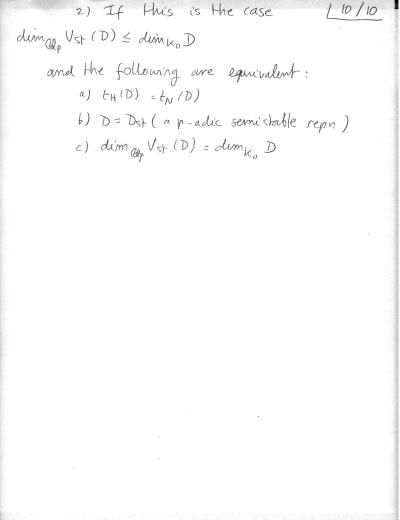 2) If this is the case
10/10
dim_{ℚp} Vst (D) ≤ dim_{K₀} D
and the following are equivalent :
a) t_H(D) = t_N(D)
b) D = Dst ( a p-adic semistable repn )
c) dim_{ℚp} Vst (D) = dim_{K₀} D